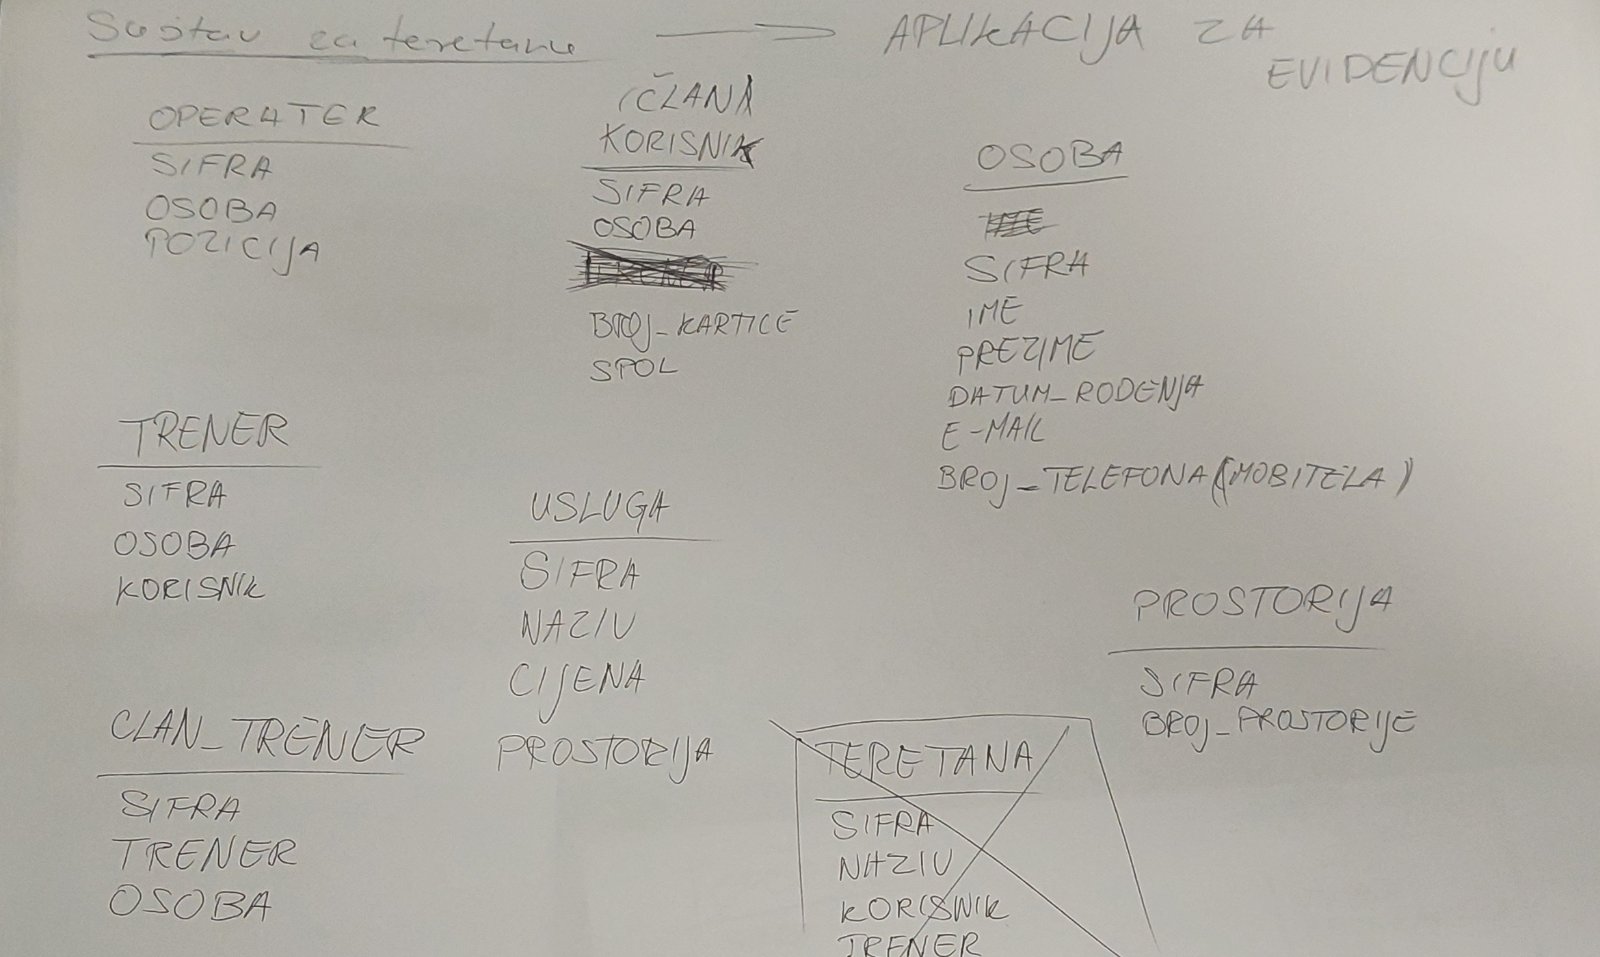 Sustav za teretanu → APLIKACIJA ZA
EVIDENCIJU
OPERATER
SIFRA
OSOBA
POZICIJA
ČLAN
KORISNIK
SIFRA
OSOBA
BROJ_KARTICE
SPOL
OSOBA
IME
SIFRA
IME
PREZIME
DATUM_RODENJA
E-MAIL
BROJ_TELEFONA (MOBITELA)
TRENER
SIFRA
OSOBA
KORISNIK
USLUGA
SIFRA
NAZIV
CIJENA
PROSTORIJA
PROSTORIJA
SIFRA
BROJ_PROSTORIJE
CLAN_TRENER
SIFRA
TRENER
OSOBA
TERETANA
SIFRA
NAZIV
KORISNIK
TRENER